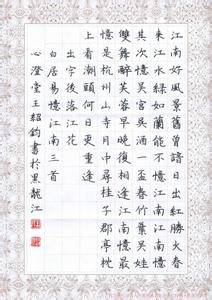 江南好風景舊曾諳日出紅勝火春
來江水綠如藍能不憶江南江南憶
其次憶吳宮吳酒一盃春竹葉吳娃
雙舞醉芙蓉早晚復相逢江南憶最
憶是杭州山寺月中尋桂子郡亭枕
上看潮頭何日更重遊
出字後落江花
白居易憶江南三首
心澄堂王紹鈞書於黑龍江